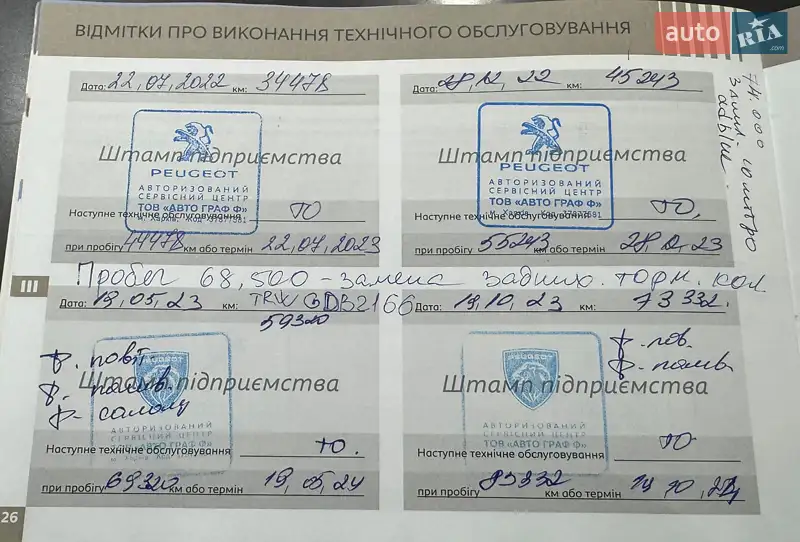 ВІДМІТКИ ПРО ВИКОНАННЯ ТЕХНІЧНОГО ОБСЛУГОВУВАННЯ
auto RIA.com
Дата: 22,07,2022 км: 34478
Штамп підприємства
PEUGEOT
АВТОРИЗОВАНИЙ
СЕРВІСНИЙ ЦЕНТР
ТОВ «АВТО ГРАФ Ф»
м. Харків, Код 37877581
Наступне технічне обслуговування ТО
при пробігу 44478 км або термін 22,07,2023
Дата: 28,12,22 км: 45243
Штамп підприємства
PEUGEOT
АВТОРИЗОВАНИЙ
СЕРВІСНИЙ ЦЕНТР
ТОВ «АВТО ГРАФ Ф»
м. Харків, Код 37877581
Наступне технічне обслуговування ТО.
при пробігу 55243 км або термін 28,12,23
74.000
adblue
III
Пробег 68,500 - замена задних. торм. кол.
TRW GDB2166
Дата: 19,05,23 км: 59320
ф. повіт.
ф. палив.
ф. салону
Штамп підприємства
PEUGEOT
АВТОРИЗОВАНИЙ
СЕРВІСНИЙ ЦЕНТР
ТОВ «АВТО ГРАФ Ф»
Наступне технічне обслуговування ТО.
при пробігу 69320 км або термін 19,05,24
Дата: 19,10,23 км: 73332.
ф. пов.
ф. палив.
Штамп підприємства
PEUGEOT
АВТОРИЗОВАНИЙ
СЕРВІСНИЙ ЦЕНТР
ТОВ «АВТО ГРАФ Ф»
Наступне технічне обслуговування ТО
при пробігу 83332 км або термін 19 10,24
26